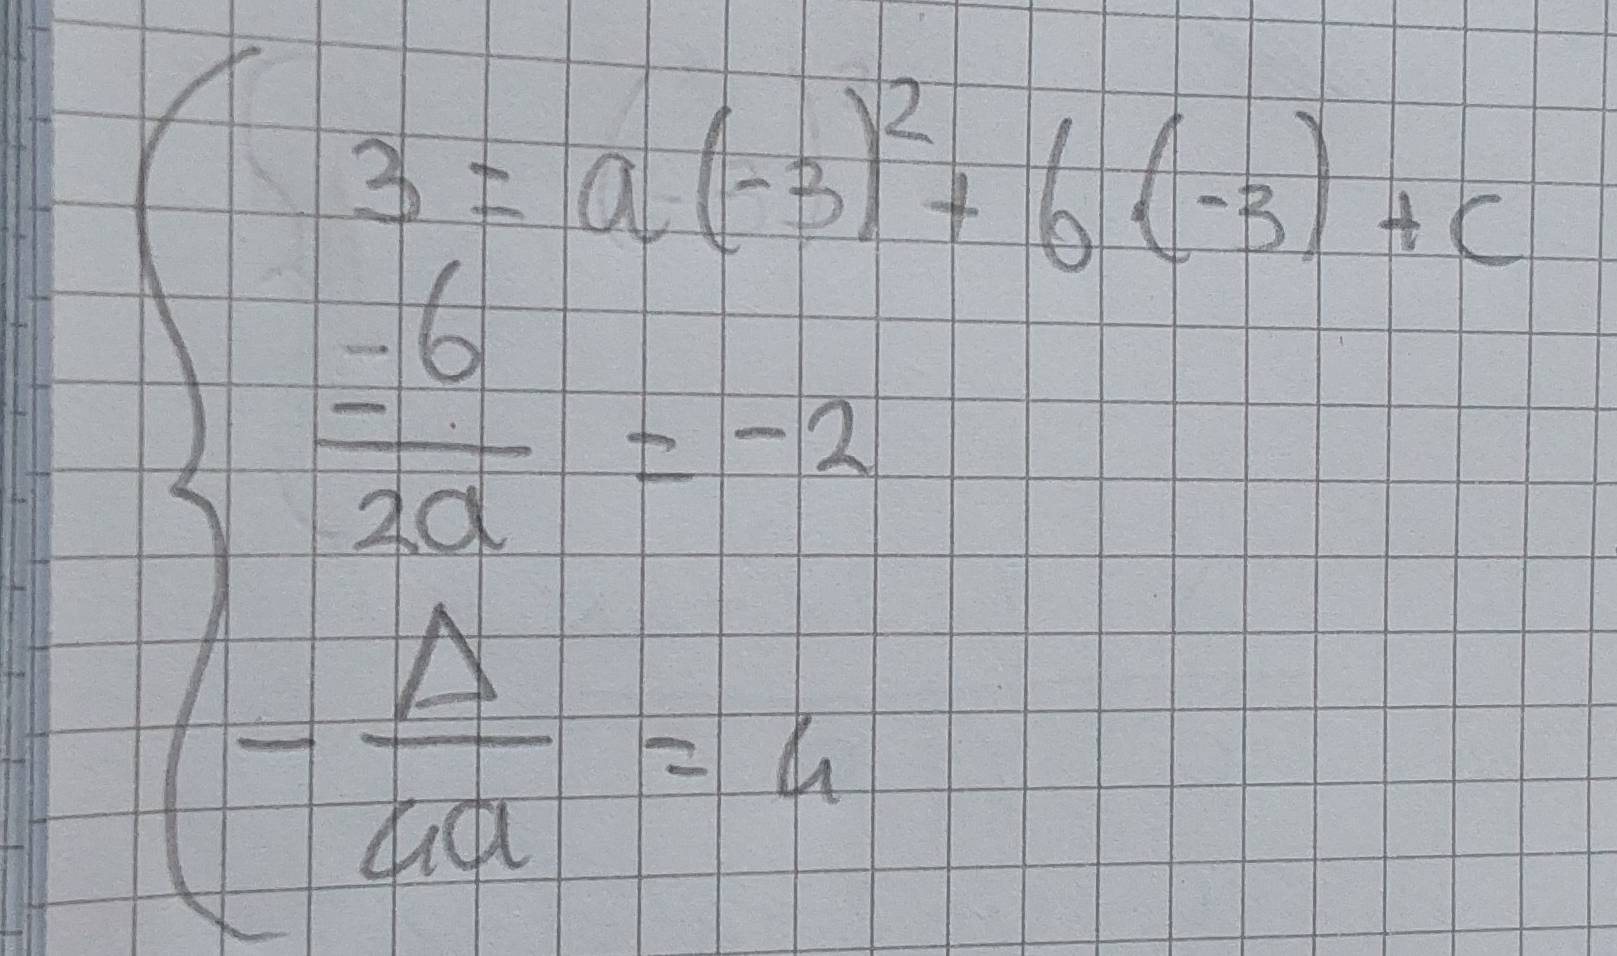 3 = a (-3)² + b (-3) + c
-b / 2a = -2
- Δ / 4a = 4